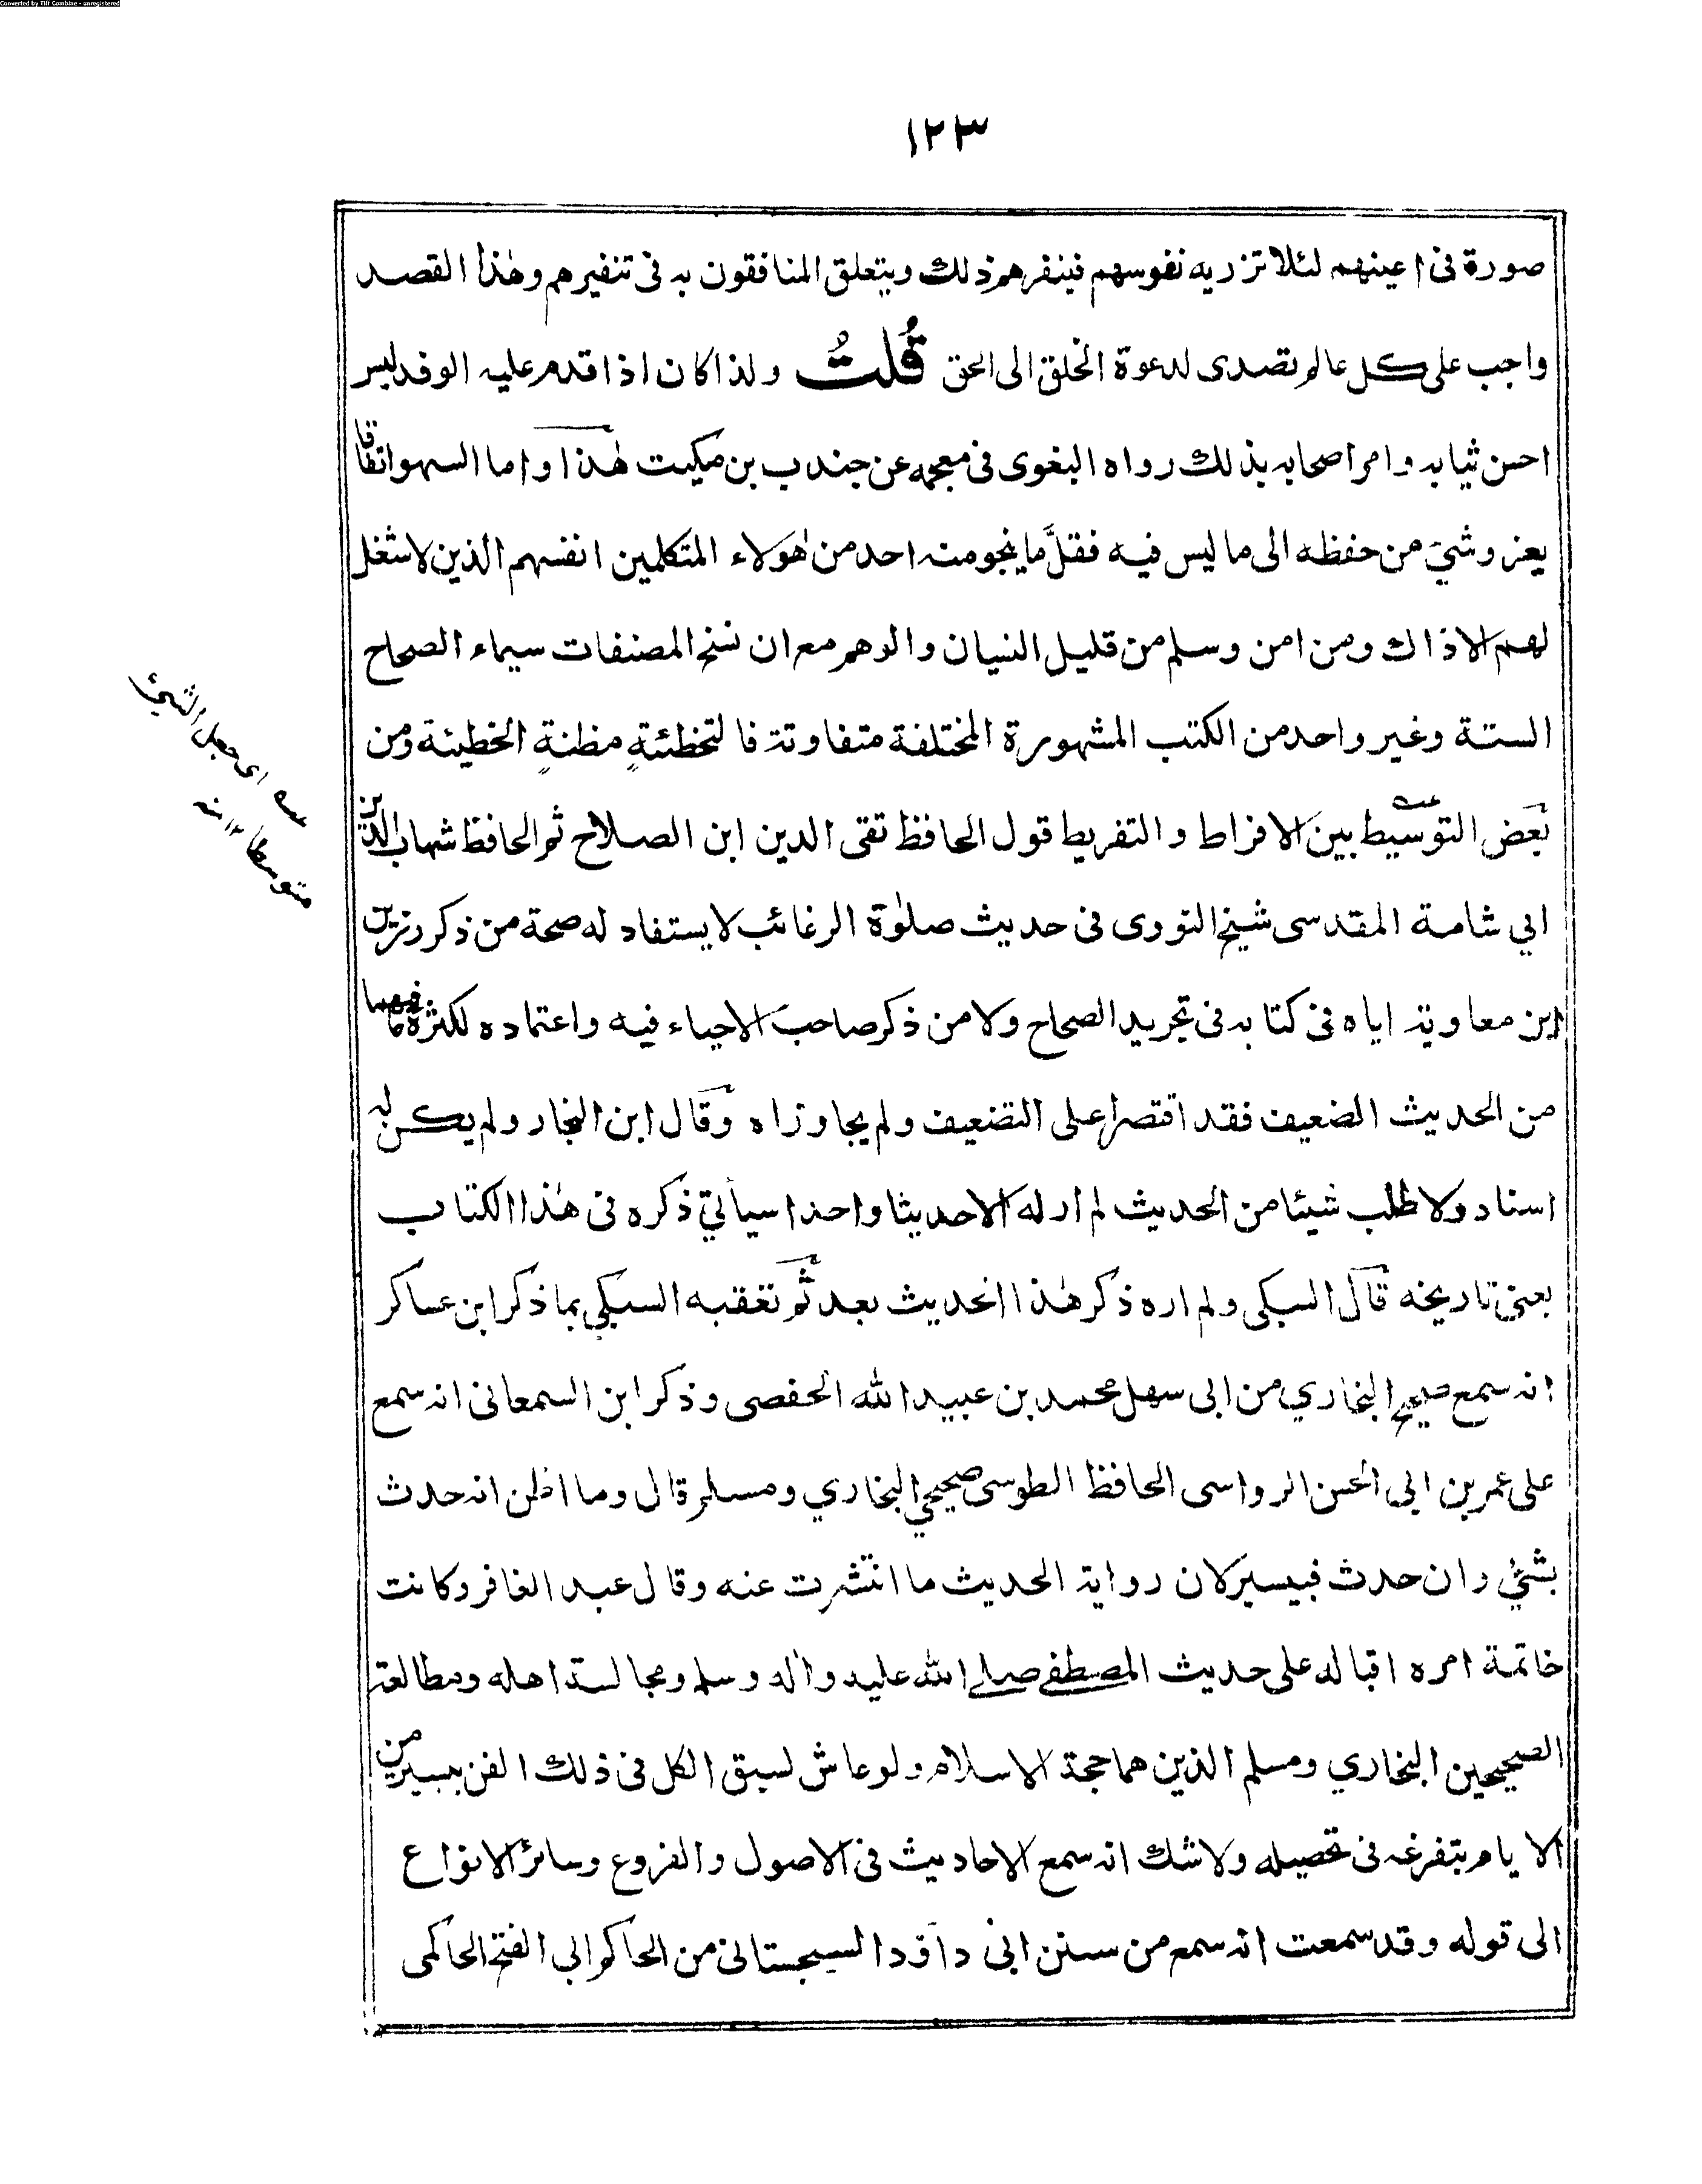 Converted by Tiff Combine - unregistered
١٢٣
صورة فى اعينهم لئلا تزريه نفوسهم فينفرهم ذلك ويتعلق المنافقون به فى تنفيرهم وهٰذا القصد
واجب على كل عالم تصدى لدعوة الخلق الى الحق قُلتُ ولذا كان اذا قدم عليه الوفد لبس
احسن ثيابه وامر اصحابه بذلك رواه البغوى فى معجمه عن جندب بن مكيث هٰذا واما السهو اتفاقا
بعزو شئ من حفظه الى ما ليس فيه فقلَّ ما ينجو منه احد من هٰولاء المتكلمين انفسهم الذين لا شغل
لهم الا ذاك ومن امن وسلم من قليل النسيان والوهم مع ان نسخ المصنفات سيماء الصحاح
الستة وغير واحد من الكتب المشهورة المختلفة متفاوتة فالتخطئةِ مظنةٍ الخطيئة ومن
بعض التوسيط بين الافراط والتفريط قول الحافظ تقى الدين ابن الصلاح ثم الحافظ شهاب الدين
ابي شامة المقدسى شيخ النووى فى حديث صلوٰة الرغائب لا يستفاد له صحة من ذكر رزين
ابن معاوية اياه فى كتابه فى تجريد الصحاح ولا من ذكر صاحب الاحياء فيه واعتماده لكثرة ما فيهما
من الحديث الضعيف فقد اقتصرا على التضعيف ولم يجاوزاه وقال ابن النجار ولم يكن له
اسناد ولا طلب شيئا من الحديث لم ار له الا حديثا واحدا سيأتي ذكره فى هٰذا الكتاب
يعنى تاريخه قال السبكى ولم اره ذكر هٰذا الحديث بعد ثم تعقبه السبكي بما ذكر ابن عساكر
انه سمع صحيح البخاري من ابى سهل محمد بن عبيد الله الحفصى وذكر ابن السمعانى انه سمع
على عمر بن ابى الحسن الرواسى الحافظ الطوسى صحيحي البخاري ومسلم قال وما اظن انه حدث
بشئ وان حدث فيسير لان رواية الحديث ما انتشرت عنه وقال عبد الغافر وكانت
خاتمة امره اقباله على حديث المصطفے صلے الله عليه واٰله وسلم ومجالسة اهله ومطالعة
الصحيحين البخاري ومسلم الذين هما حجة الاسلام ولو عاش لسبق الكل فى ذلك الفن بيسير من
الايام بتفرغه فى تحصيله ولا شك انه سمع الاحاديث فى الاصول والفروع وسائر الانواع
الى قوله وقد سمعت انه سمع من سنن ابى داؤد السجستانى من الحاكم ابي الفتح الحاكمى
عسه اى جعل الشئ
متوسطا ١٢ منه